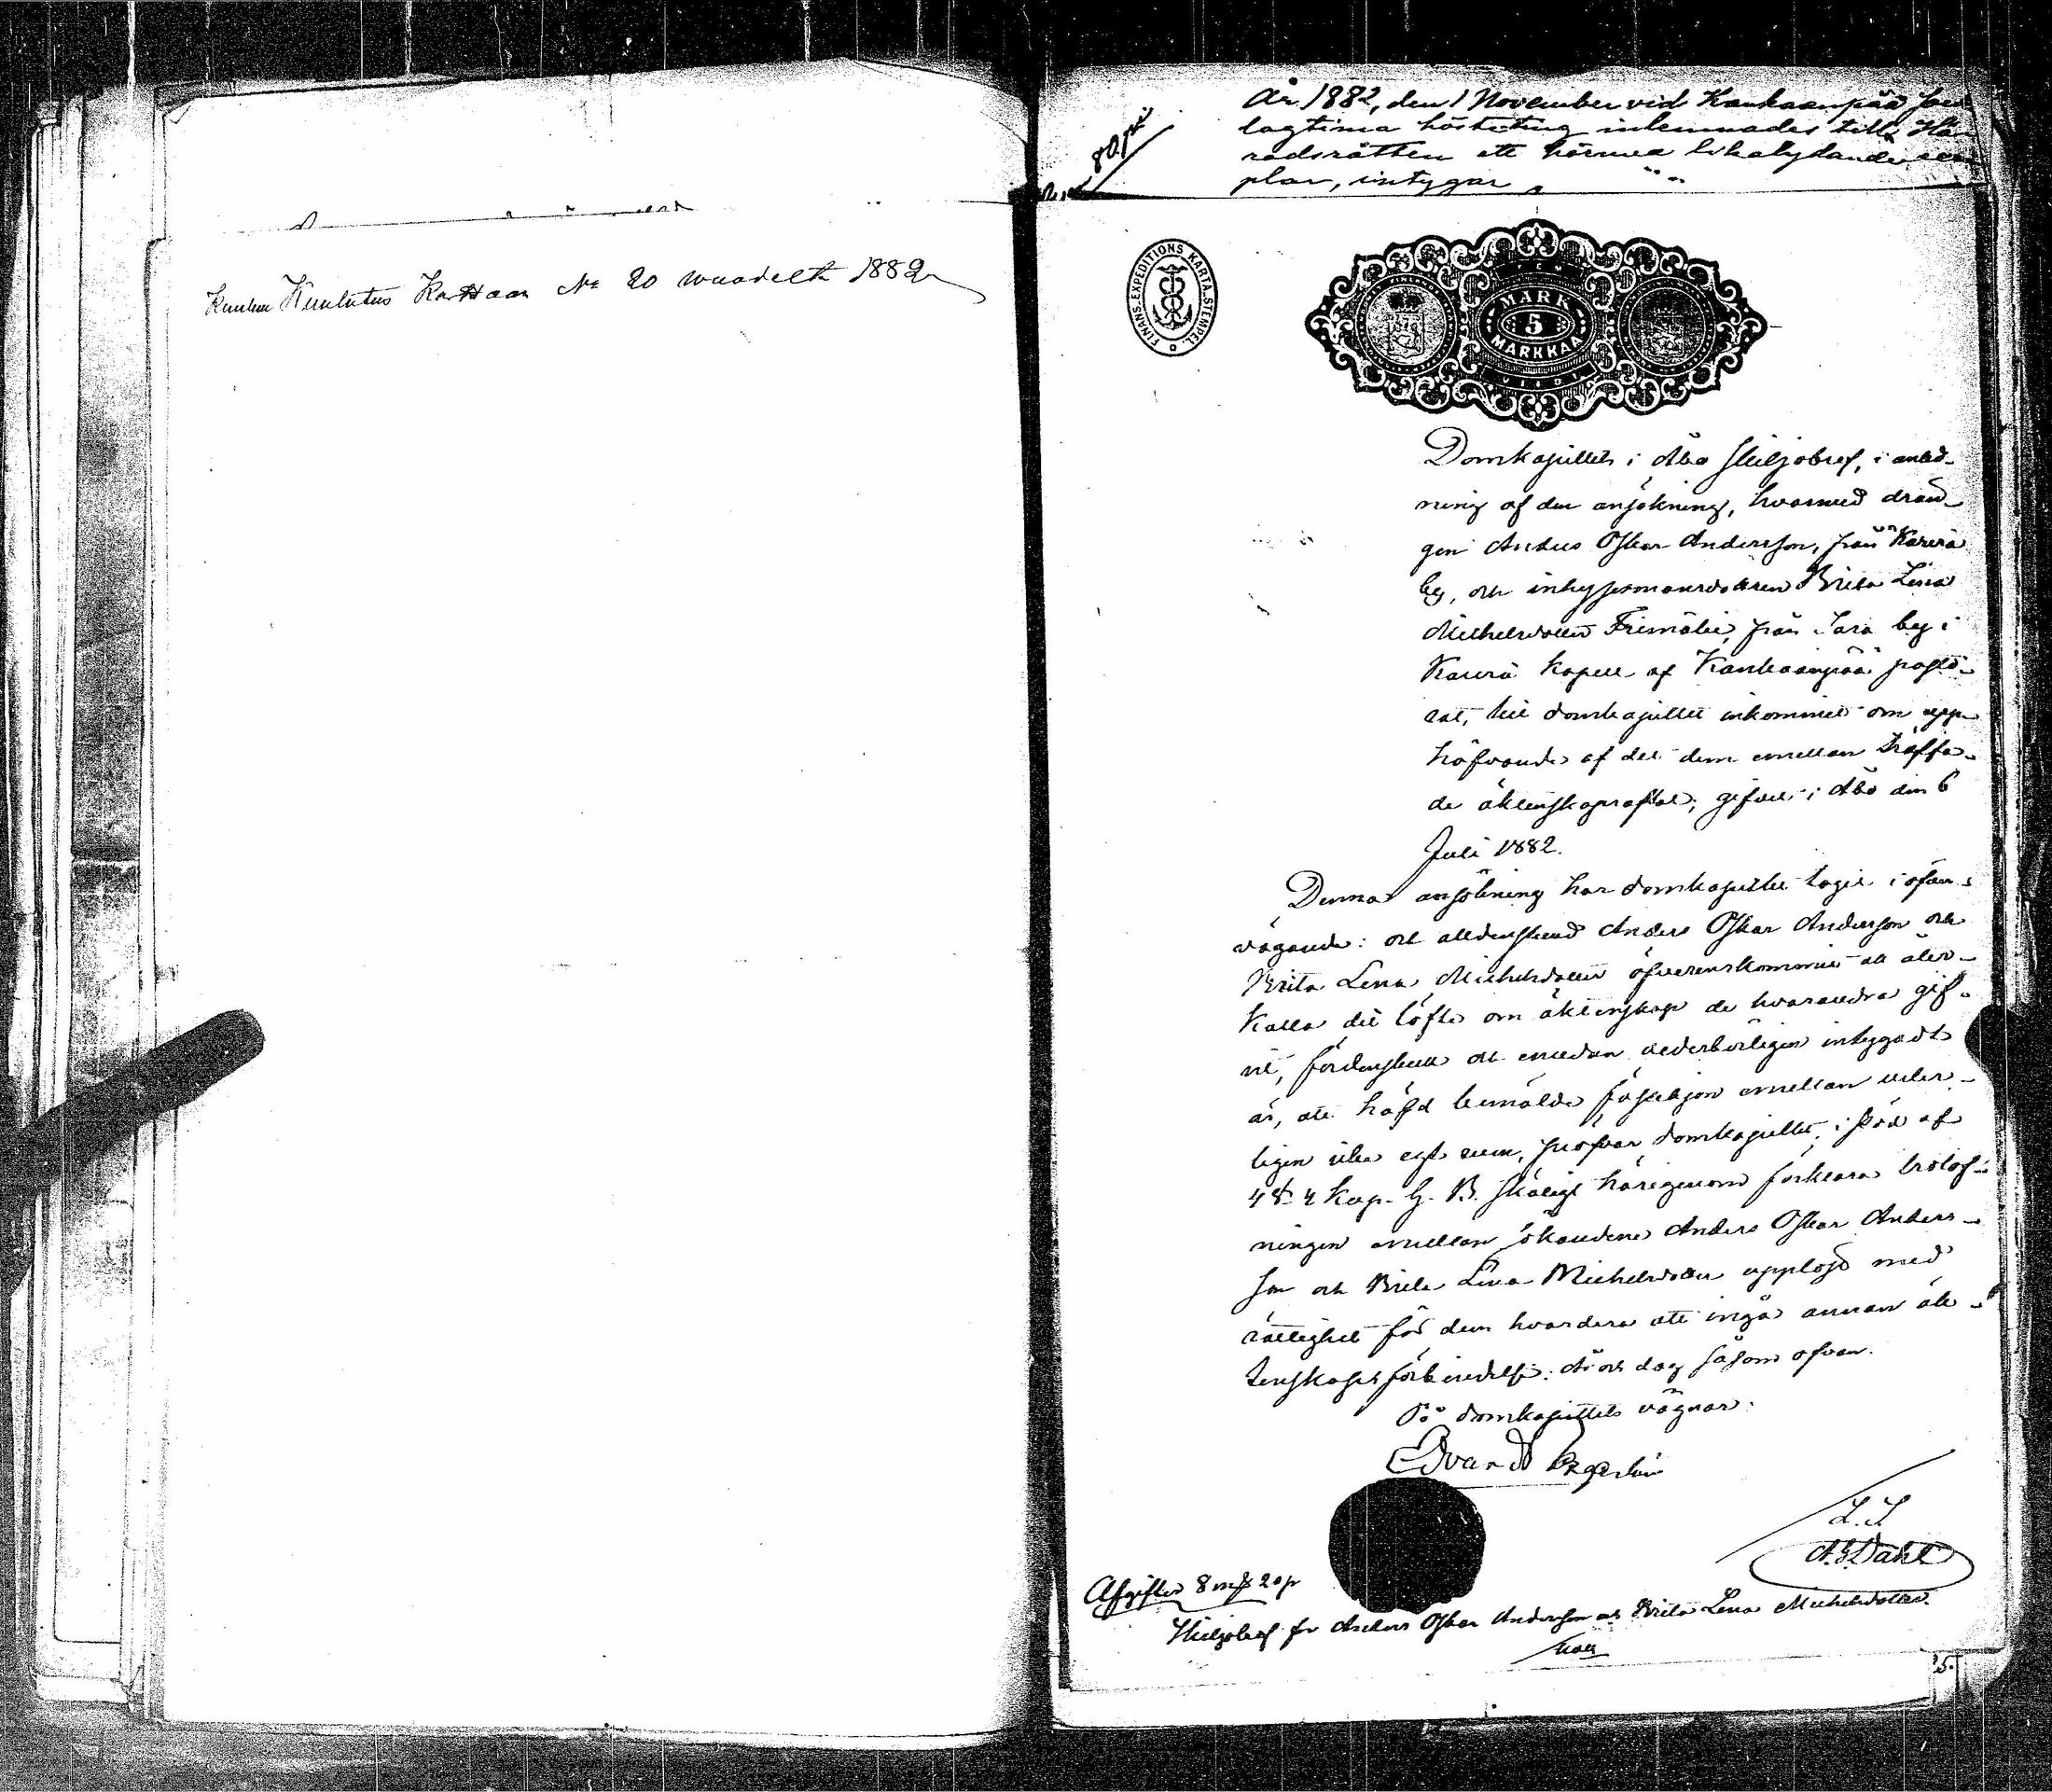 Kuuluu Kuulutus Kattaan No 20 wuodelta 1882
År 1882, den 1 November vid Kankaanpää soc
lagtima hösteting inlemnades till Hä
radsrätten ett härmed likalydande exem
plar, intygar
80 p:i
FINANS.EXPEDITIONS KARTA.STEMPEL.
MARK
5
MARKKAA
Domkapitlets i Åbo skiljobref, i anled-
ning af den ansökning, hvarmed drän-
gen Anders Oskar Andersson, från Karvia
by, och inhysesmansdottren Brita Lena
Michelsdotter Frimälie, från Sara by i
Karvia kapell af Kankaanpää pasto-
rat, till domkapitlet inkommit om upp-
häfvande af det dem emellan träffa-
de äktenskapsaftal; gifvet i Åbo den 6
Juli 1882.
Denna ansökning har domkapitlet tagit i öfver-
vägande: och alldenstund Anders Oskar Andersson och
Brita Lena Michelsdotter öfverenskommit att åter-
kalla det löfte om äktenskap de hvarandra gif-
vit, fördenskull och emedan vederbörligen intygadt
är, att häfd bemälde fästehjon emellan veter-
ligen icke egt rum, pröfvar domkapitlet, i stöd af
4 § 4 Kap. G. B. skäligt härigenom förklara trolof-
ningen emellan sökandene Anders Oskar Anders-
son och Brita Lena Michelsdotter upplöst med
rättighet för dem hvardera att ingå annan äk-
tenskapsförbindelse. År och dag såsom ofvan.
På domkapitlets vägnar:
Edvard
L. S.
Dahl
Afgifter 8 mk 20 p
Skiljobref för Anders Oskar Andersson och Brita Lena Michelsdotter.